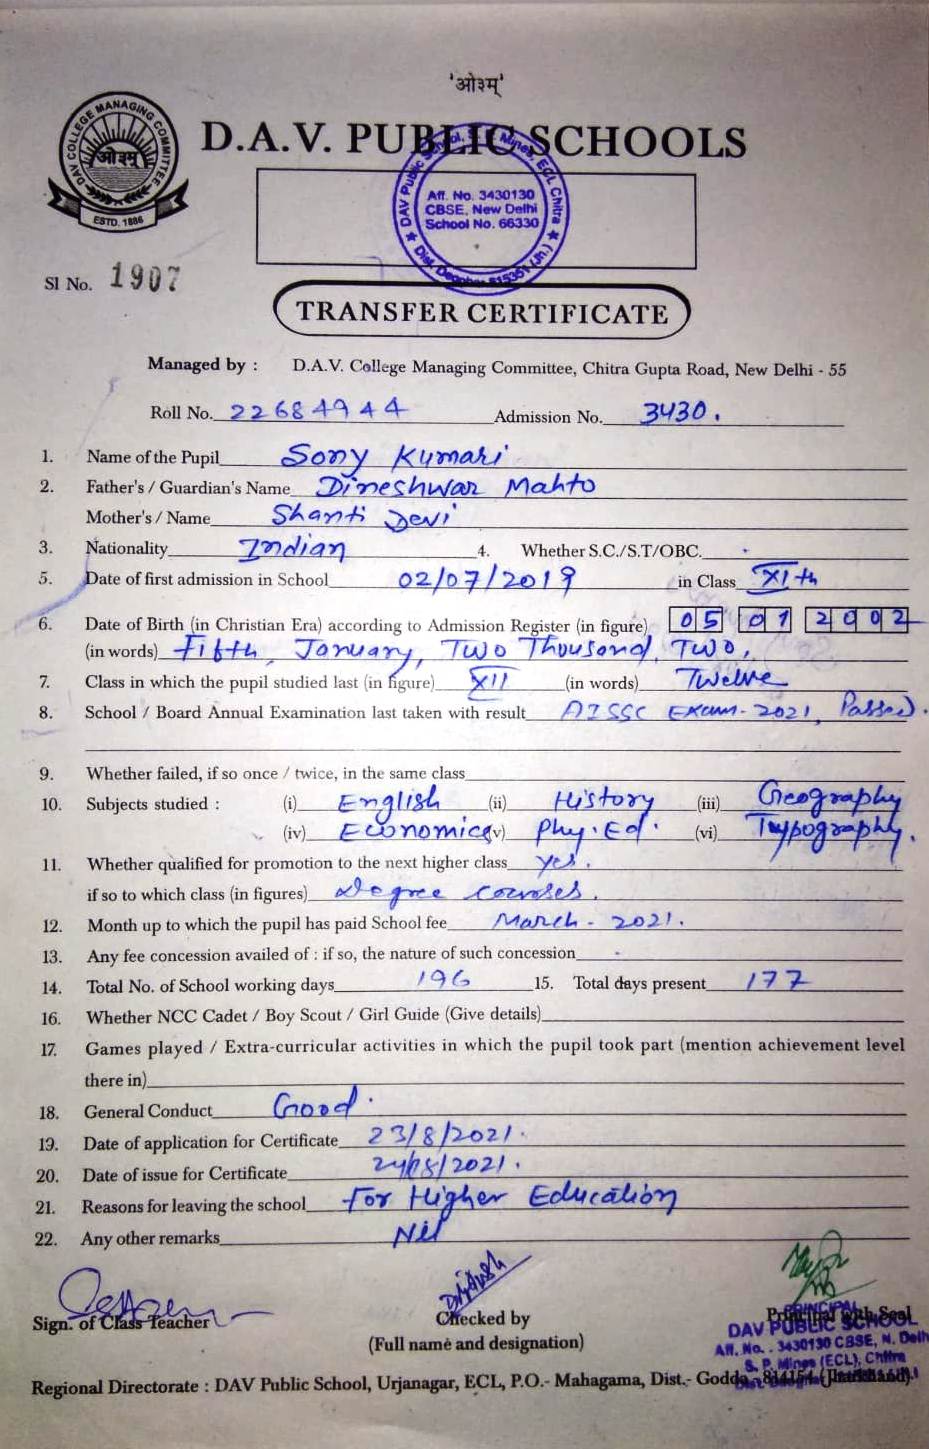 'ओ३म्'
DAV COLLEGE MANAGING COMMITTEE
ओ३म्
ESTD. 1886
D.A.V. PUBLIC SCHOOLS
DAV Public School, S. P. Mines, ECL Chitra
Aff. No. 3430130
CBSE, New Delhi
School No. 66330
Dist. Deoghar 815351 (Jh.)
Sl No. 1907
TRANSFER CERTIFICATE
Managed by : D.A.V. College Managing Committee, Chitra Gupta Road, New Delhi - 55
Roll No. 22684944 Admission No. 3430.
1. Name of the Pupil Sony Kumari
2. Father's / Guardian's Name Dineshwar Mahto
Mother's / Name Shanti Devi
3. Nationality Indian 4. Whether S.C./S.T/OBC. -
5. Date of first admission in School 02/07/2019 in Class XIth
6. Date of Birth (in Christian Era) according to Admission Register (in figure) 05 01 2002
(in words) Fifth, January, Two Thousand, Two,
7. Class in which the pupil studied last (in figure) XII (in words) Twelve
8. School / Board Annual Examination last taken with result AISSC Exam - 2021, Passed.
9. Whether failed, if so once / twice, in the same class
10. Subjects studied : (i) English (ii) History (iii) Geography
(iv) Economics (v) Phy. Ed. (vi) Typography.
11. Whether qualified for promotion to the next higher class Yes.
if so to which class (in figures) Degree courses.
12. Month up to which the pupil has paid School fee March - 2021.
13. Any fee concession availed of : if so, the nature of such concession -
14. Total No. of School working days 196 15. Total days present 177
16. Whether NCC Cadet / Boy Scout / Girl Guide (Give details)
17. Games played / Extra-curricular activities in which the pupil took part (mention achievement level
there in)
18. General Conduct Good.
19. Date of application for Certificate 23/8/2021.
20. Date of issue for Certificate 24/8/2021.
21. Reasons for leaving the school For Higher Education
22. Any other remarks Nil
Sign. of Class Teacher Checked by Principal with Seal
(Full name and designation)
PRINCIPAL
DAV PUBLIC SCHOOL
Aff. No. . 3430130 CBSE, N. Delhi
S. P. Mines (ECL), Chitra
Regional Directorate : DAV Public School, Urjanagar, ECL, P.O.- Mahagama, Dist.- Godda - 814154 (Jharkhand)